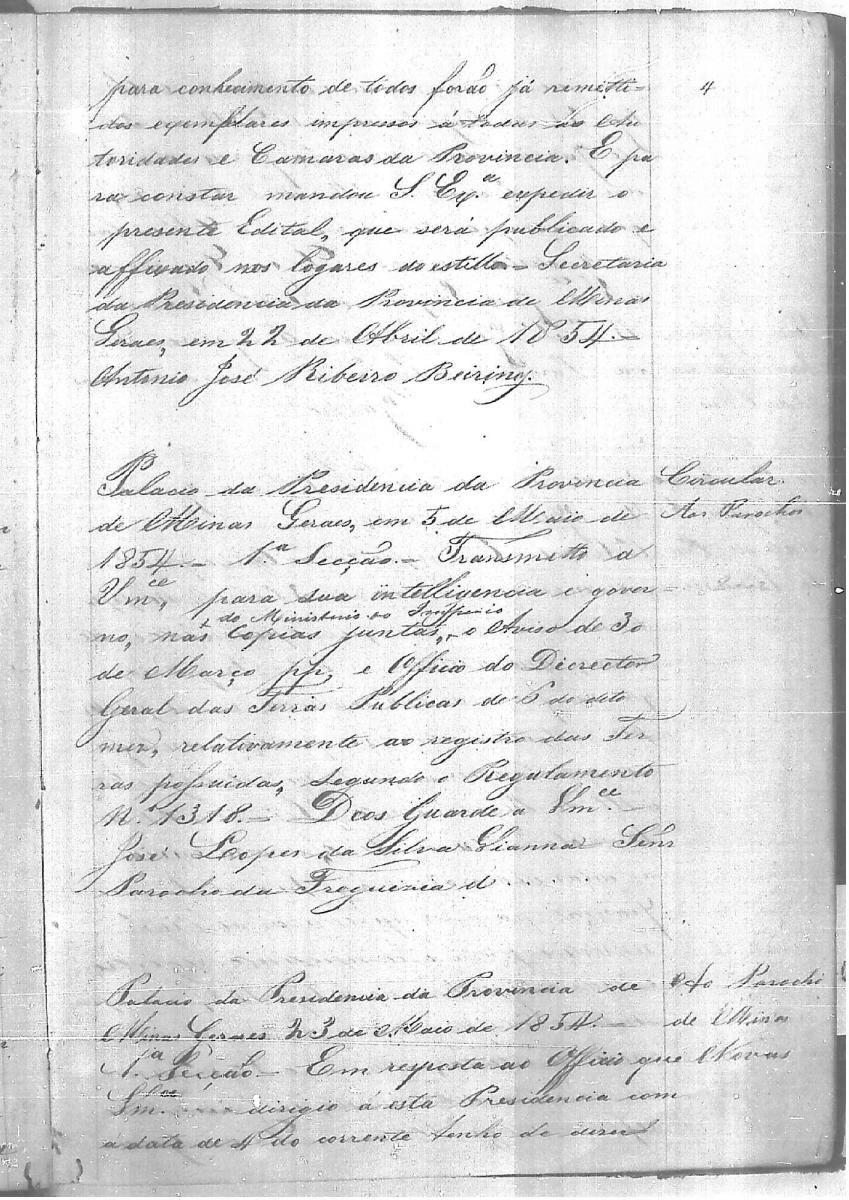 para conhecimento de todos forão já remetti-
dos exemplares impressos á todas as Au
toridades e Camaras da Provincia. E pa
ra constar mandou S. Exª. expedir o
presente Edital, que será publicado e
affixado nos logares do estillo = Secretaria
da Presidencia da Provincia de Minas
Geraes, em 22 de Abril de 1854. =
Antonio José Ribeiro Bhering.
4
Palacio da Presidencia da Provincia
de Minas Geraes, em 5 de Maio de
1854. = 1.ª Secção. = Transmitto a
Vm.ce, para sua intelligencia e gover
do Ministerio do Imperio
no, nas copias juntas, o Aviso de 30
de Março pp, e Officio do Director
Geral das Terras Publicas de 6 do dito
mez, relativamente ao registro das Ter
ras possuidas, segundo o Regulamento
N.º 1318. = Deos Guarde a Vm.ce =
José Lopes da Silva Vianna Senr
Parocho da Freguezia d
Circular
Aos Parochos
Palacio da Presidencia da Provincia de
Minas Geraes 23 de Maio de 1854. =
1.ª Secção = Em resposta ao Officio que
Vm.ce dirigio á esta Presidencia com
a data de 4 do corrente tenho de dizer
Ao Parocho
de Minas
Novas